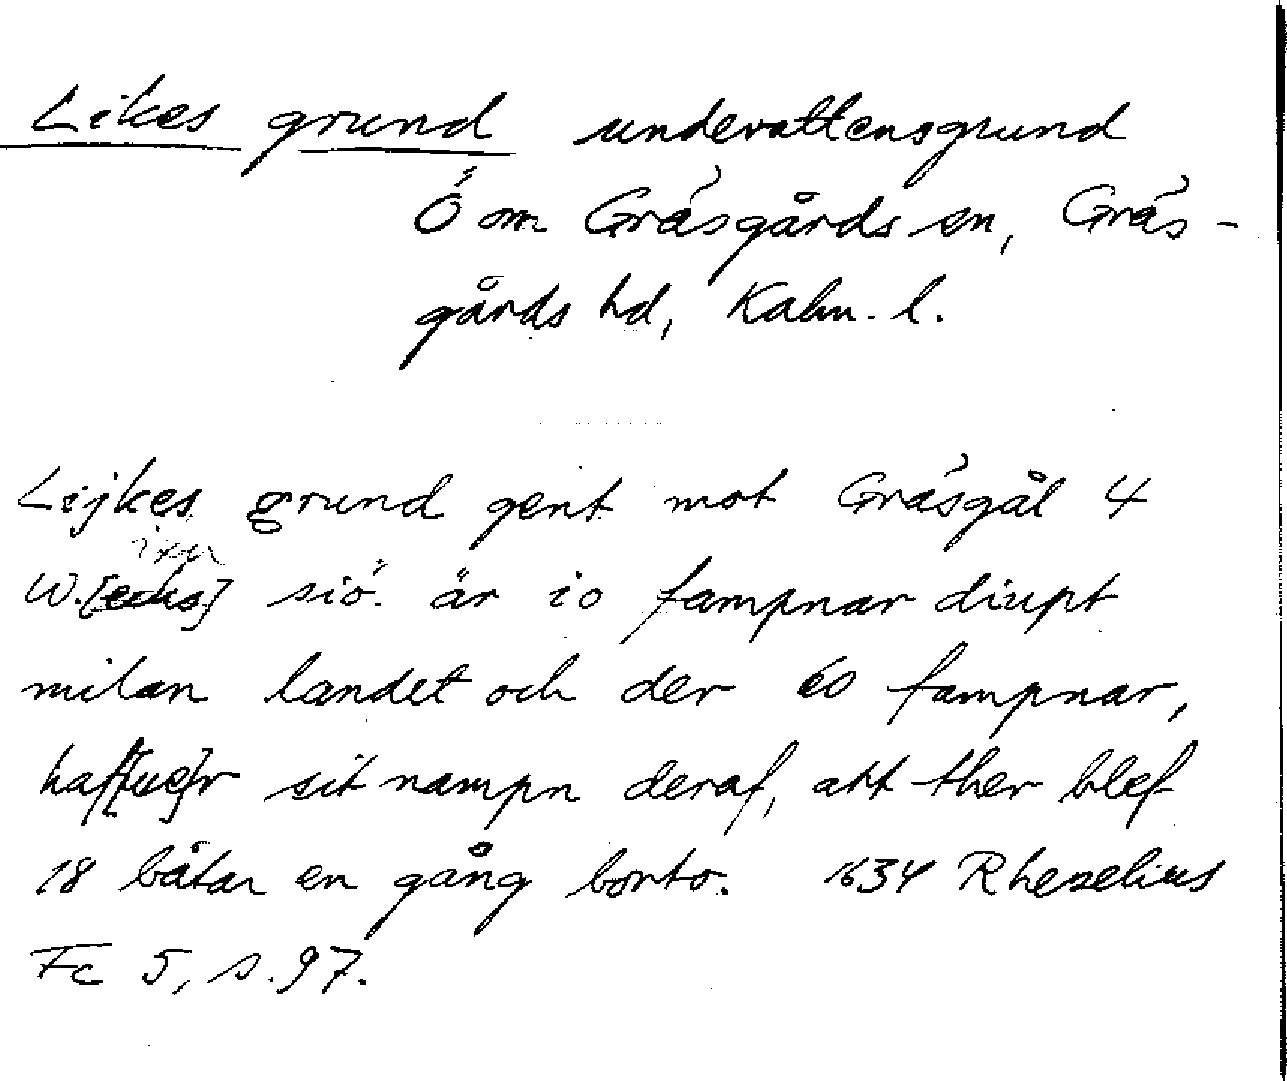 Likes grund undervattensgrund
Ö om Gräsgårds sn, Gräs-
gårds hd, Kalm. l.
Lijkes grund gent mot Gräsgål 4
W.[eckas] siö. är io fampnar diupt
milan landet och der 60 fampnar,
haf[fue]r sit nampn deraf, att ther blef
18 båtar en gång borto. 1634 Rhezelius
Fc 5, s. 97.